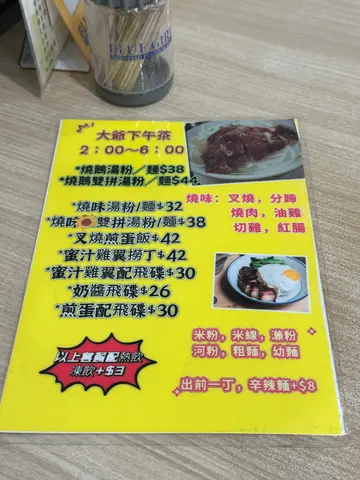 BLUE GIRL
大爺下午茶
2：00～6：00
燒鵝湯粉／麵$38
*燒鵝雙拼湯粉/麵$44
*燒味湯粉/麵$32
*燒味雙拼湯粉/麵$38
*叉燒煎蛋飯$42
*蜜汁雞翼撈丁$42
*蜜汁雞翼配飛碟$30
*奶醬飛碟$26
*煎蛋配飛碟$30
燒味：叉燒，分蹄
燒肉，油雞
切雞，紅腸
米粉，米線，瀨粉
河粉，粗麵，幼麵
出前一丁，辛辣麵+$8
以上套餐配熱飲
凍飲+$3